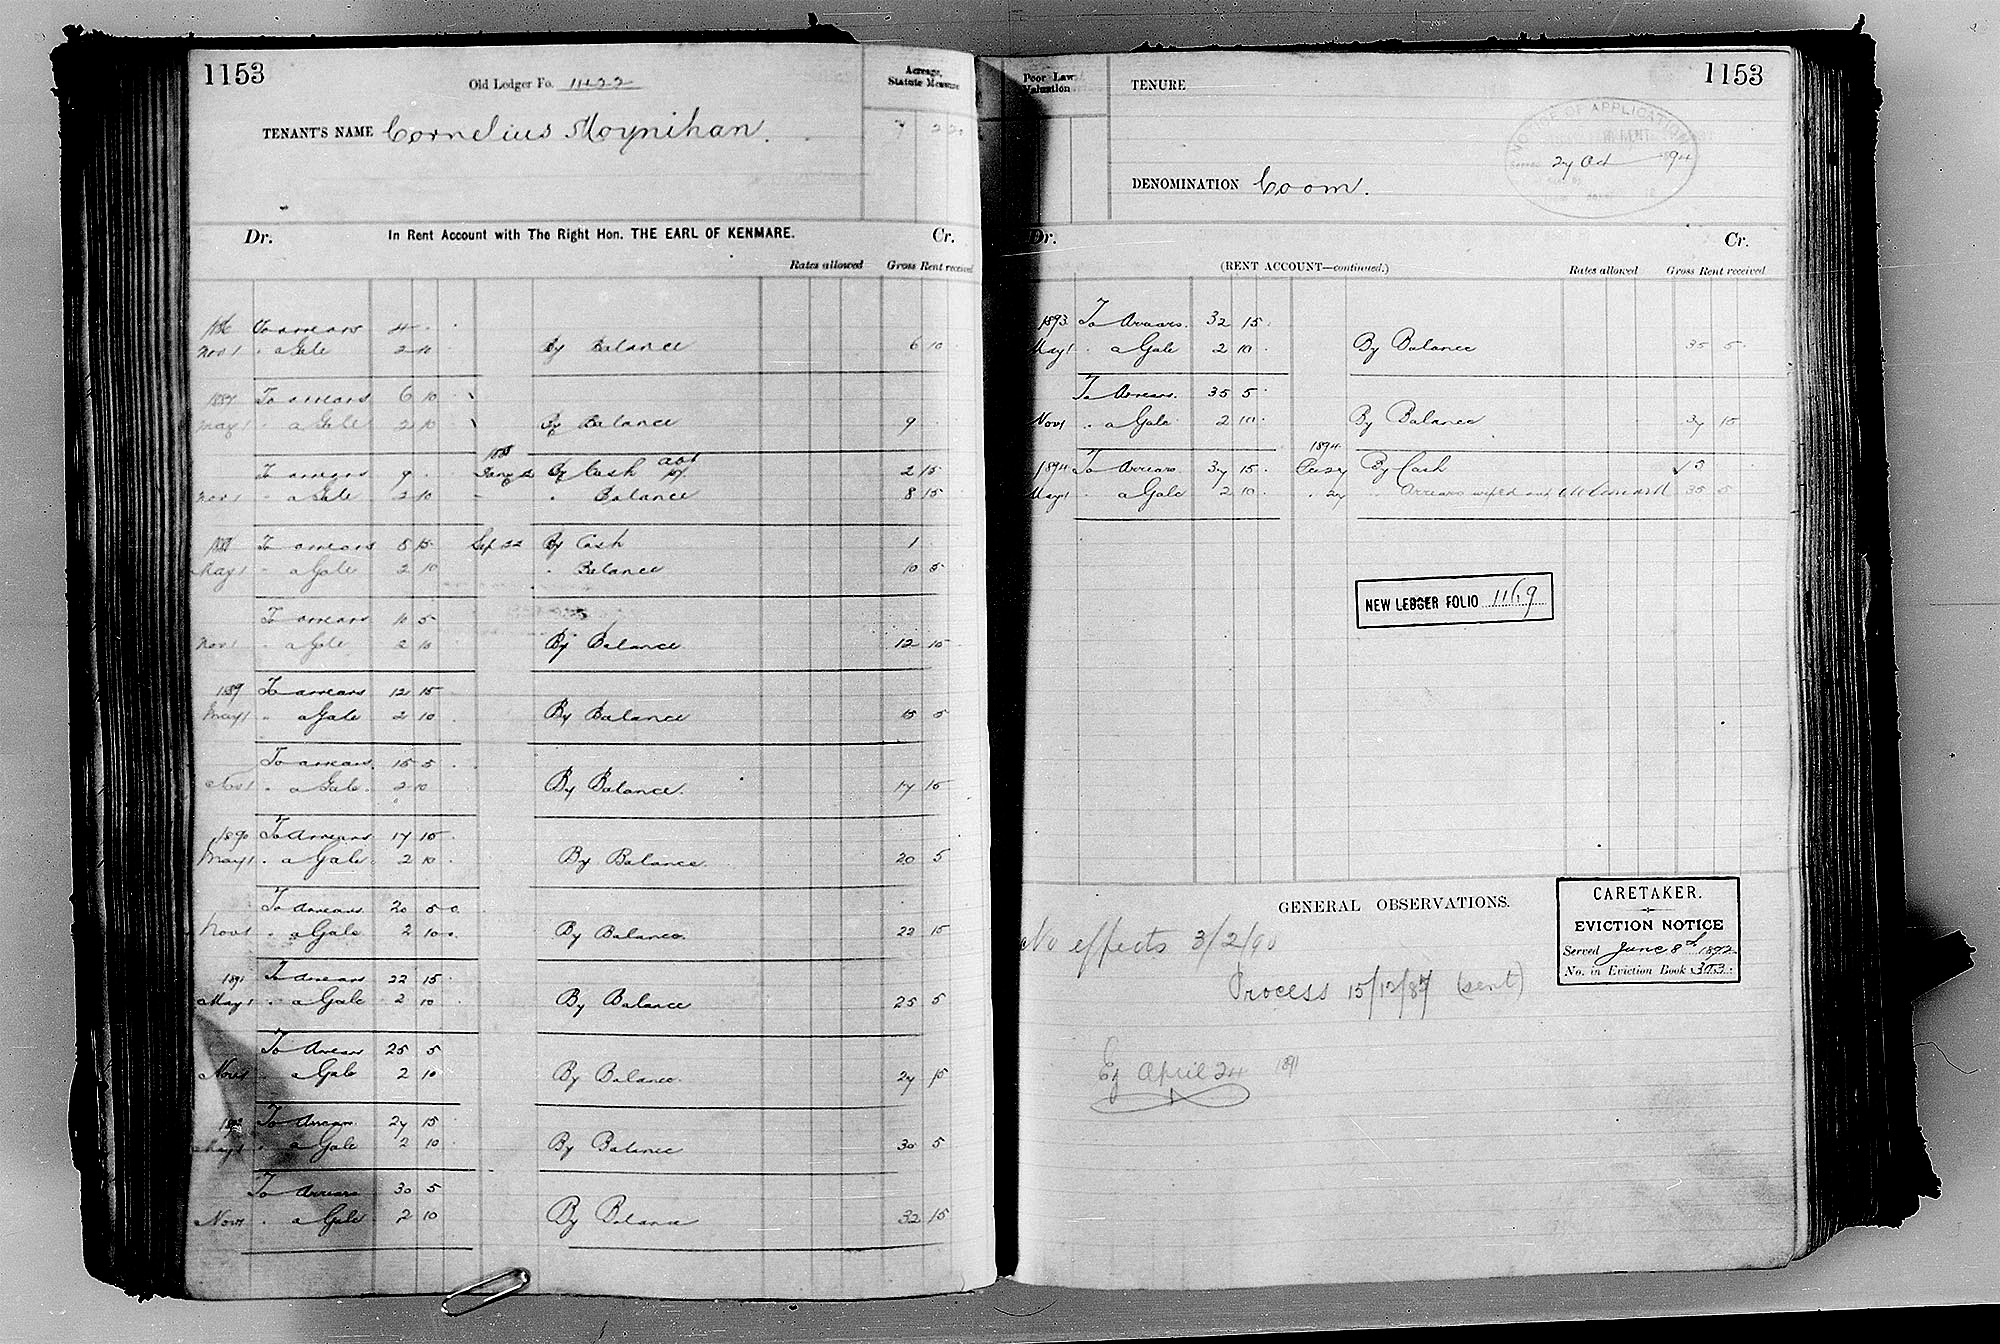 1153
Old Ledger Fo. 1122
Acreage, Statute Measure
TENANT'S NAME Cornelius Moynihan.
7 2 20
Dr. In Rent Account with The Right Hon. THE EARL OF KENMARE. Cr.
Rates allowed Gross Rent received
1886 To arrears 4 - -
Nov 1 " a Gale 2 10 By Balance 6 10
1887 To arrears 6 10
May 1 " a Gale 2 10 By Balance 9
To arrears 9 1888 Jany 12 By Cash 2 15
Nov 1 " a Gale 2 10 " Balance 8 15
1888 To arrears 8 15 Sep 22 By Cash 1
May 1 " a Gale 2 10 " Balance 10 5
To arrears 10 5
Nov 1 " a Gale 2 10 By Balance 12 15
1889 To arrears 12 15
May 1 " a Gale 2 10 By Balance 15 5
To arrears. 15 5
Nov 1 " a Gale 2 10 By Balance. 17 15
1890 To Arrears 17 15
May 1 " a Gale 2 10 By Balance. 20 5
To Arrears 20 5
Nov 1 " a Gale 2 10 By Balance. 22 15
1891 To Arrears 22 15
May 1 " a Gale 2 10 By Balance 25 5
To Arrears 25 5
Nov 1 " a Gale 2 10 By Balance. 27 15
1892 To Arrears 27 15
May 1 " a Gale 2 10 By Balance 30 5
To Arrears 30 5
Nov 1 " a Gale 2 10 By Balance 32 15
Poor Law Valuation
TENURE
1153
NOTICE OF APPLICATION
RENT
Served 27 Oct 1894
DENOMINATION Coom.
Dr. Cr.
(RENT ACCOUNT—continued.) Rates allowed Gross Rent received
1893 To Arrears. 32 15
May 1 " a Gale 2 10 By Balance 35 5
To Arrears. 35 5
Nov 1 " a Gale 2 10 By Balance 37 15
1894
1894 To Arrears 37 15 By Cash 5
May 1 " a Gale 2 10 " 27 Arrears wiped out 35 5
NEW LEDGER FOLIO 1169
GENERAL OBSERVATIONS.
CARETAKER.
EVICTION NOTICE
Served June 8th 1892
No. in Eviction Book 303
No effects 3/2/90
Process 15/12/87 (sent)
Ej April 24 1891